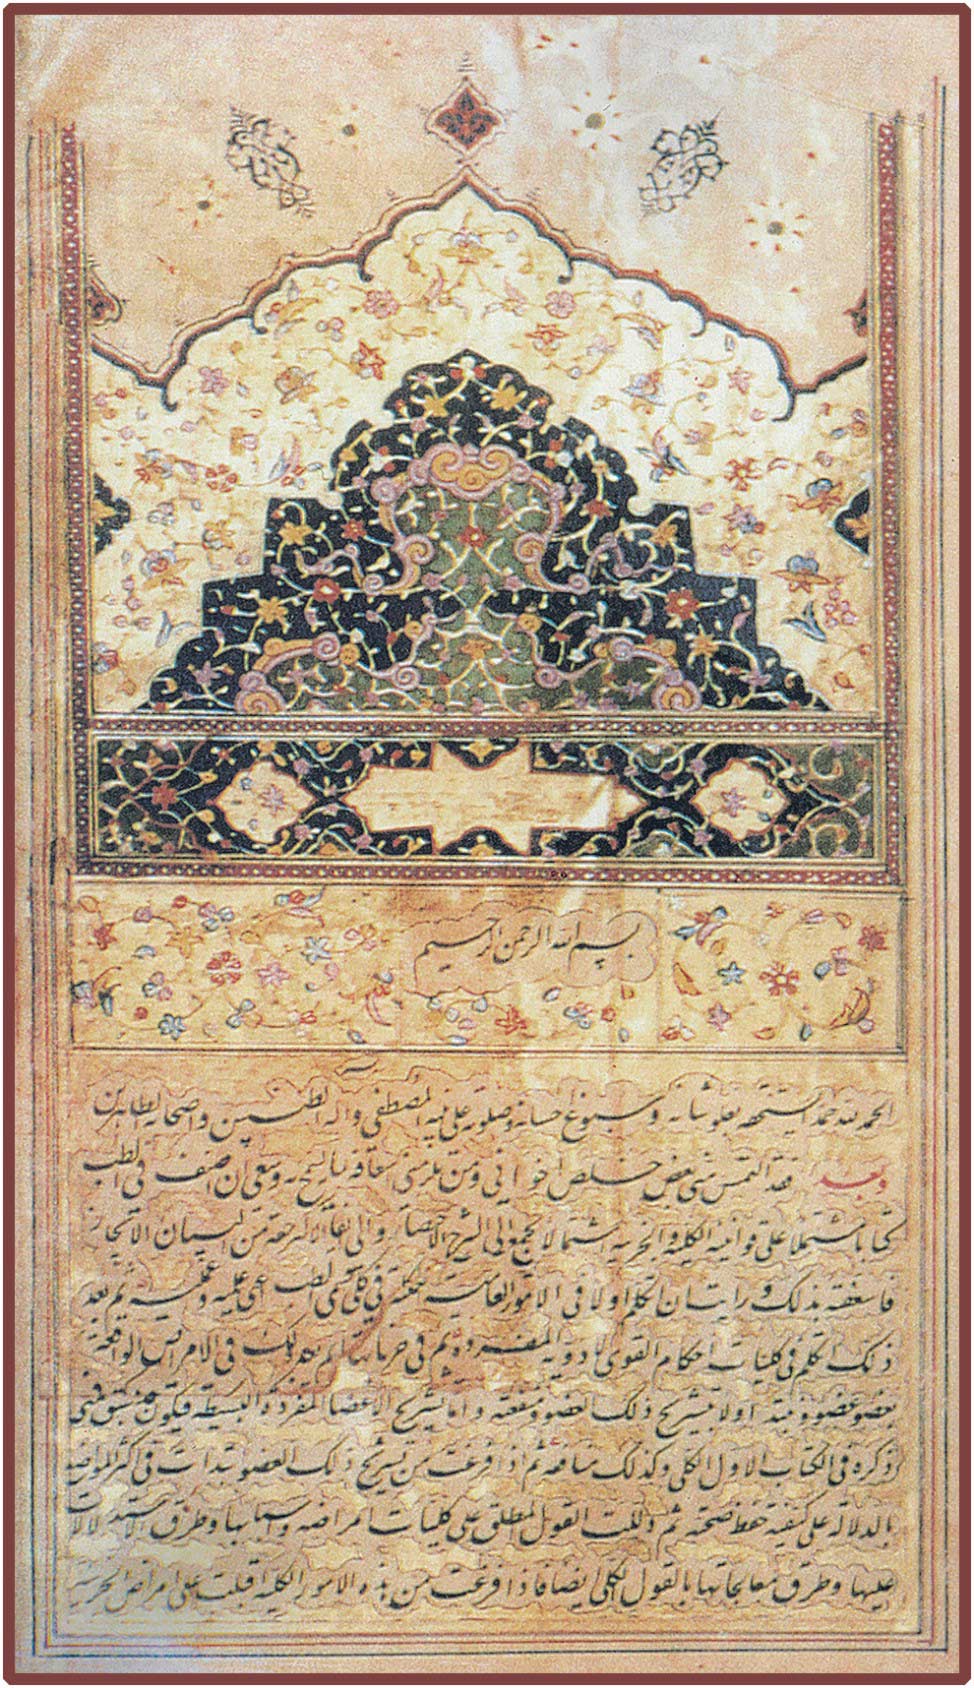 بسم الله الرحمن الرحيم
الحمد لله حمدا يستحقه بعلو شانه وسبوغ احسانه وصلوته على نبيه المصطفى واله الطيبين واصحابه الطاهرين
وبعد فقد التمس منى بعض خلص اخوانى ومن يلزمنى اسعافه بما يسمح به وسعى ان اصنف فى الطب
كتابا مشتملا على قوانينه الكلية والجزئية اشتمالا يجمع الى الشرح الاختصار والى ايفاء الاكثر حقه من البيان الايجاز
فاسعفته بذلك ورايت ان اتكلم اولا فى الامور العامية فى الطب اعنى علميه وعمليه ثم بعد
ذلك اتكلم فى كليات احكام القوى الادوية المفردة ثم فى جزئياتها ثم بعد ذلك فى الامراض الواقعة
بعضو عضو ونبتدا اولا بتشريح ذلك العضو ومنفعته واما تشريح الاعضا المفردة البسيطة فيكون قد سبق منى
ذكره فى الكتاب الاول الكلى وكذلك منافعه ثم اذا فرغت من تشريح ذلك العضو ابتدات فى اكثر المواضع
بالدلاله على كيفيه حفظ صحته ثم دللت القول المطلق على كليات امراضه واسبابها وطرق الاستدلالات
عليها وطرق معالجاتها بالقول الكلى ايضا فاذا فرغت من هذه الامور الكلية اقبلت على امراض الجزئية